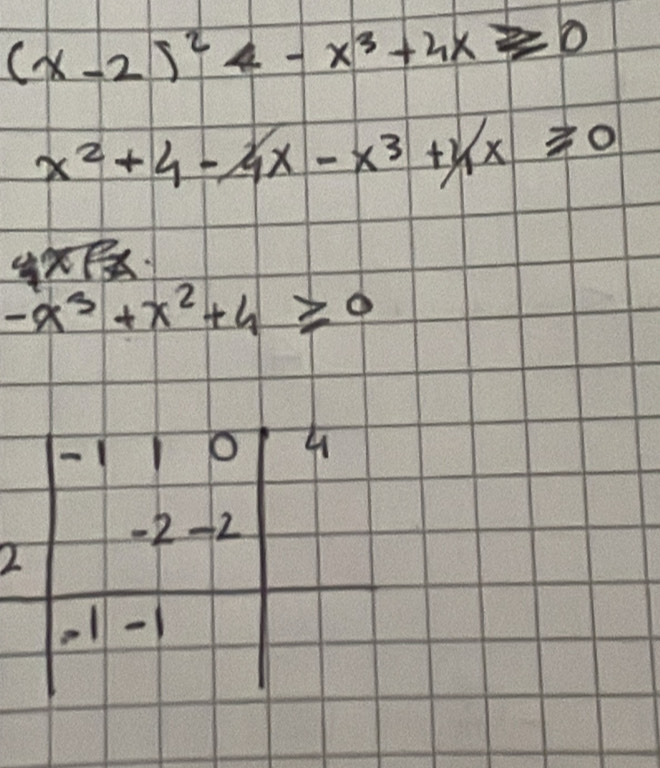 (x-2)² - x³ + 4x ≥ 0
x² + 4 - 4x - x³ + 4x ≥ 0
-x³ + x² + 4 ≥ 0
-1 1 0 4
-2 -2
2
-1 -1